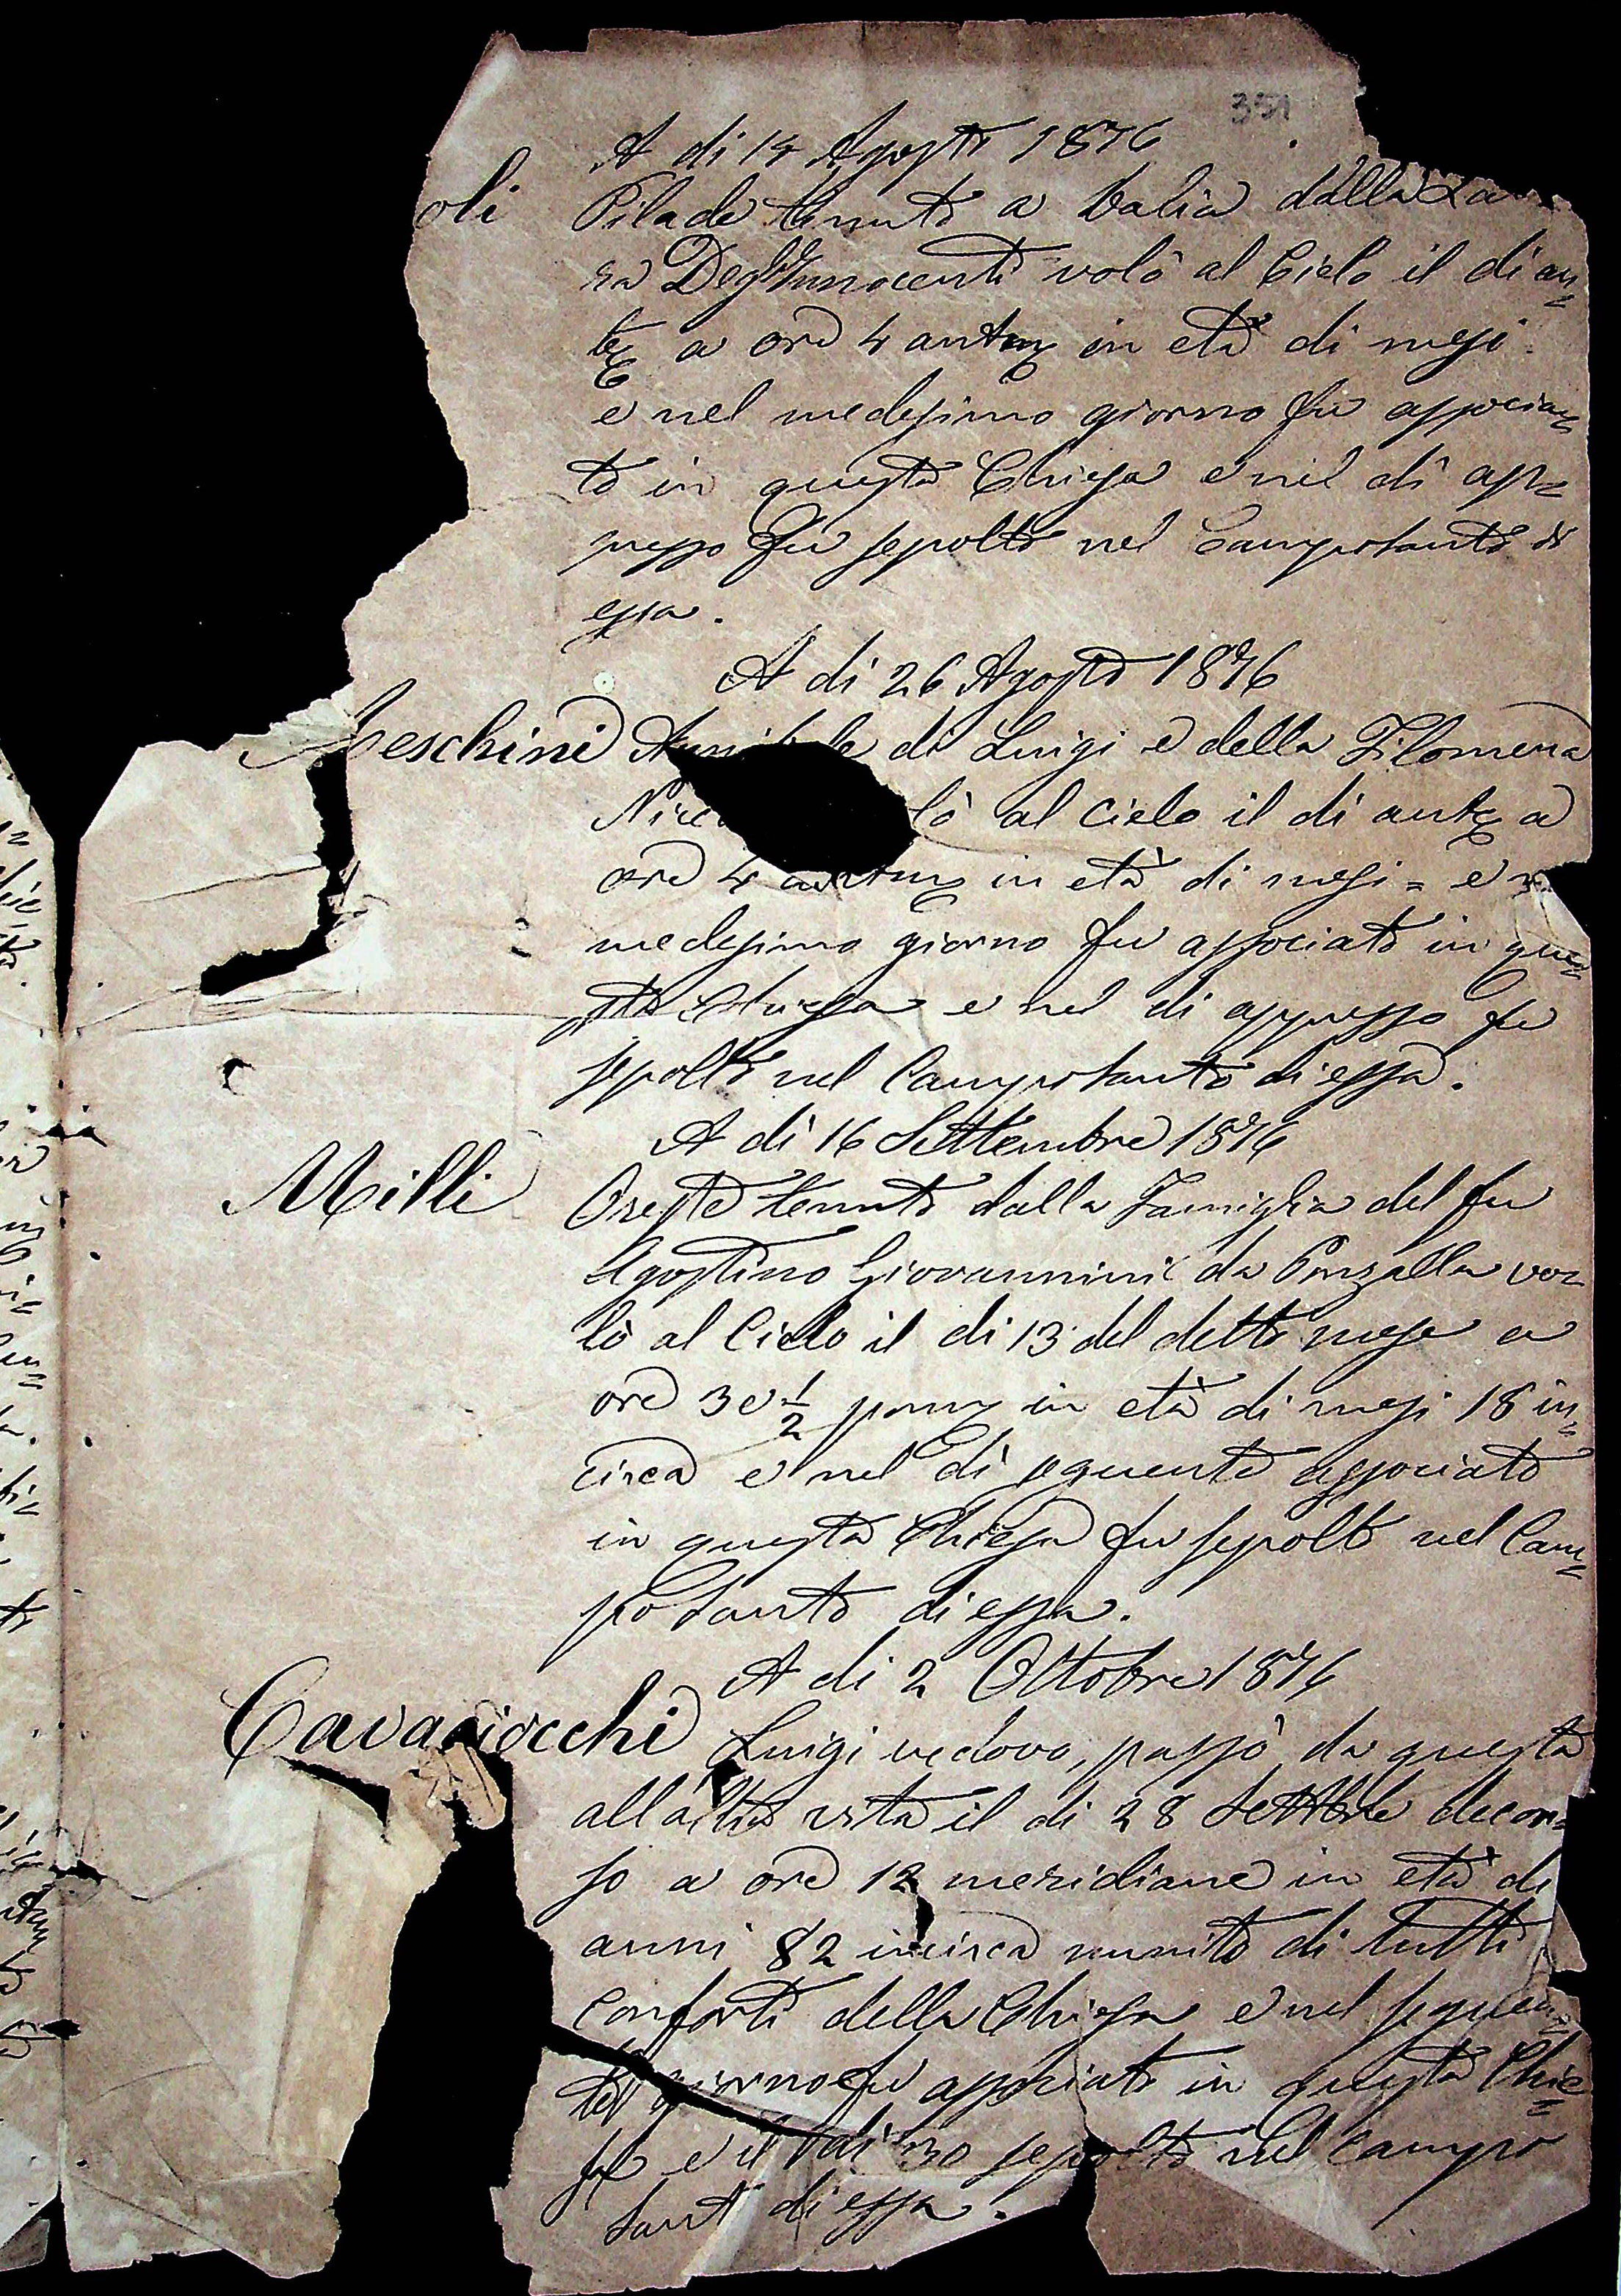 351
A di 14 Agosto 1876
oli Pilade tenuto a balia dalla La
ra Degl'Innocenti volò al Cielo il di an=
te a ore 4 antm in età di mesi
e nel medesimo giorno fu associa=
to in questa Chiesa e nel dì ap=
presso fu sepolto nel Camposanto di
essa.
A di 26 Agosto 1876
eschini di Luigi e della Filomena
lò al Cielo il di ante a
ore 4 antm in età di mesi = e n
medesimo giorno fu associato in que=
sta Chiesa e nel di appresso fu
sepolto nel Camposanto di essa.
A dì 16 Settembre 1876
Milli Oreste tenuto dalla Famiglia del fu
Agostino Giovannini da Panzalla vo=
lò al Cielo il di 13 del detto mese a
ore 3 e 1/2 pom in età di mesi 18 in=
circa e nel dì seguente associato
in questa Chiesa fu sepolto nel Cam=
posanto di essa.
A di 2 Ottobre 1876
Cavaciocchi Luigi vedovo, passò da questa
all'altra vita il di 28 Settbre decor=
so a ore 12 meridiane in età di
anni 82 incirca munito di tutti
conforti della Chiesa e nel seguen=
te giorno fu associato in questa Chie=
sa e il di 30 sepolto nel campo
sant di essa.